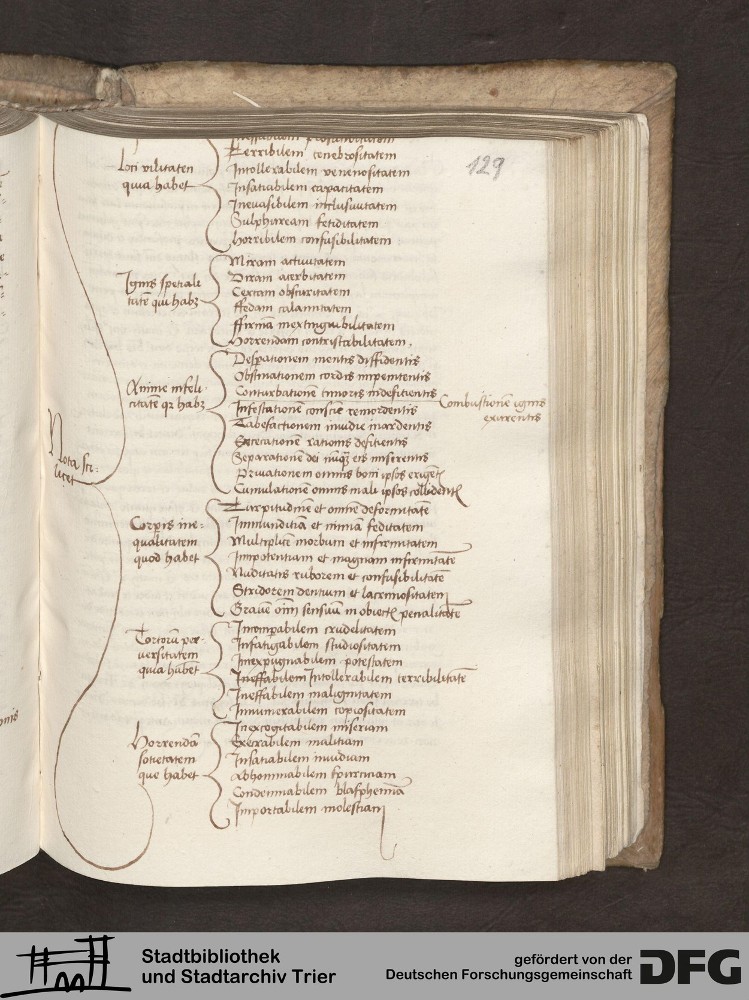 129
Terribilem tenebrositatem
Loci vilitatem
quia habet
Intollerabilem venenositatem
Insatiabilem capacitatem
Ineuasibilem inclusiuitatem
Sulphuream fetiditatem
horribilem confusibilitatem
Ignis speciali
tatē qui habꝫ
Miram actiuitatem
Diram acerbitatem
Certam obscuritatem
ffedam calamitatem
ffirmā inextinguibilitatem
Horrendam contristabilitatem.
Anime infeli
citatē qꝛ habꝫ
Desperationem mentis diffidentis
Obstinationem cordis impenitentis
Conturbationē timoris indeficientis
Infestationē conscīe remordentis
Combustionē ignis
exurentis
Tabefactionem inuidie mordentis
Execationem rationis deficientis
Separationem dei nūqꝫ eis miserentis
Priuationem omnis boni ipsos
Cumulationē omnis mali ipsos
Nota sci:
licet
Corpis ine:
qualitatem
quod habet
Turpitudinē et omnē deformitatē
Immunditiā et nimiā feditatem
Multiplicē morbum et infirmitatem
Impotentiam et magnam infirmitatē
Nuditatis ruborem et confusibilitatē
Stridorem dentium et lacrimositatem
Grauē oīm sensuū in obiectꝭ penalitatē
Tortorū per
uersitatem
quia habent
Incompabilem crudelitatem
Infatigabilem studiositatem
Inexpugnabilem potestatem
Ineffabilem Intollerabilem terribilitatē
Ineffabilem malignitatem
Innumerabilem copiositatem
Horrendā
societatem
que habet
Inexcogitabilem miseriam
Execrabilem malitiam
Insatiabilem inuidiam
Abhominabilem spurciciam
Condemnabilem blasphemiā
Importabilem molestiam
Stadtbibliothek
und Stadtarchiv Trier
gefördert von der
Deutschen Forschungsgemeinschaft
DFG